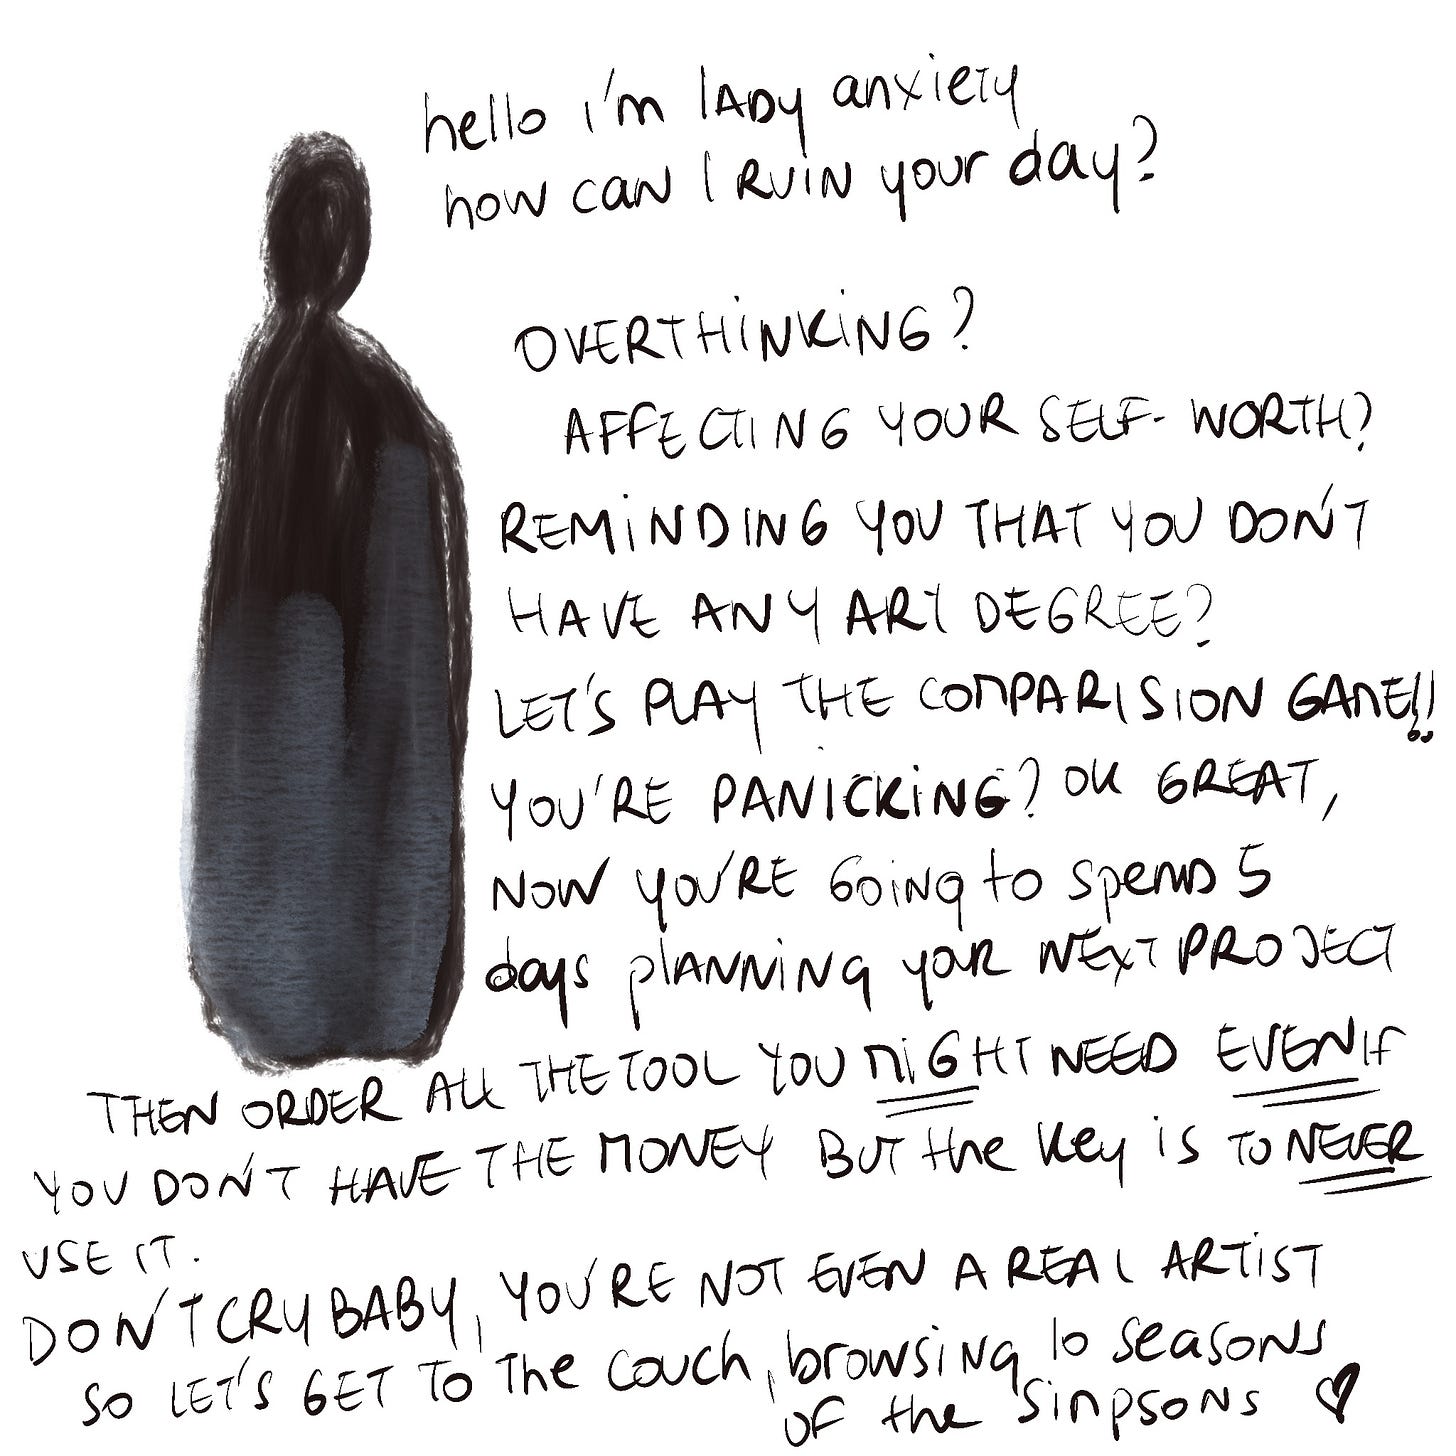 hello i'm lADy anxiety
how can I RUIN your day?
OVERTHiNKiNG?
AFFECTING YOUR SELF-WORTH?
REMiNDING YOU THAT YOU DON'T
HAVE ANY ART DEGREE?
LET'S PLAY THE COMPARISION GAME!!
YOU'RE PANICKiNG? OK GREAT,
NOW YOU'RE GOiNg to spend 5
days plANNiNg your NEXT PROJECT
THEN ORDER ALL THE TOOL YOU MiGHT NEED EVEN IF
YOU DON'T HAVE THE MONEY BUT the key is TO NEVER
USE IT.
DON'T CRY BABY, YOU'RE NOT EVEN A REAL ARTIST
SO LET'S GET TO The couch, browsiNg 10 seasons
of the Simpsons ♡